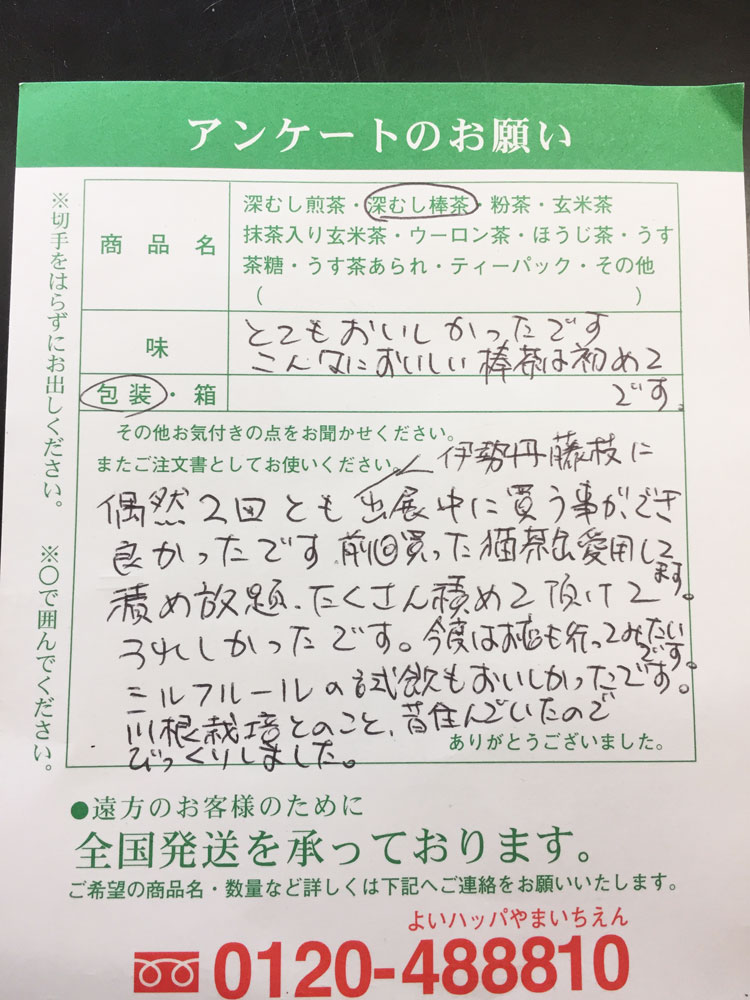 アンケートのお願い
※切手をはらずにお出しください。 ※〇で囲んでください。
商品名
深むし煎茶・深むし棒茶・粉茶・玄米茶
抹茶入り玄米茶・ウーロン茶・ほうじ茶・うす
茶糖・うす茶あられ・ティーパック・その他
( )
味
とてもおいしかったです
こんなにおいしい棒茶は初めて
です。
包装・箱
その他お気付きの点をお聞かせください。
またご注文書としてお使いください。
伊勢丹藤枝に
偶然2回とも出展中に買う事ができ
良かったです 前回買った猫茶缶愛用して
ます。
積め放題、たくさん積めて頂けて
うれしかったです。今度はお店も行ってみたい
です。
ミルフルールの試飲もおいしかったです。
川根栽培とのこと、昔住んでいたので
びっくりしました。
ありがとうございました。
●遠方のお客様のために
全国発送を承っております。
ご希望の商品名・数量など詳しくは下記へご連絡をお願いいたします。
よいハッパやまいちえん
0120-488810